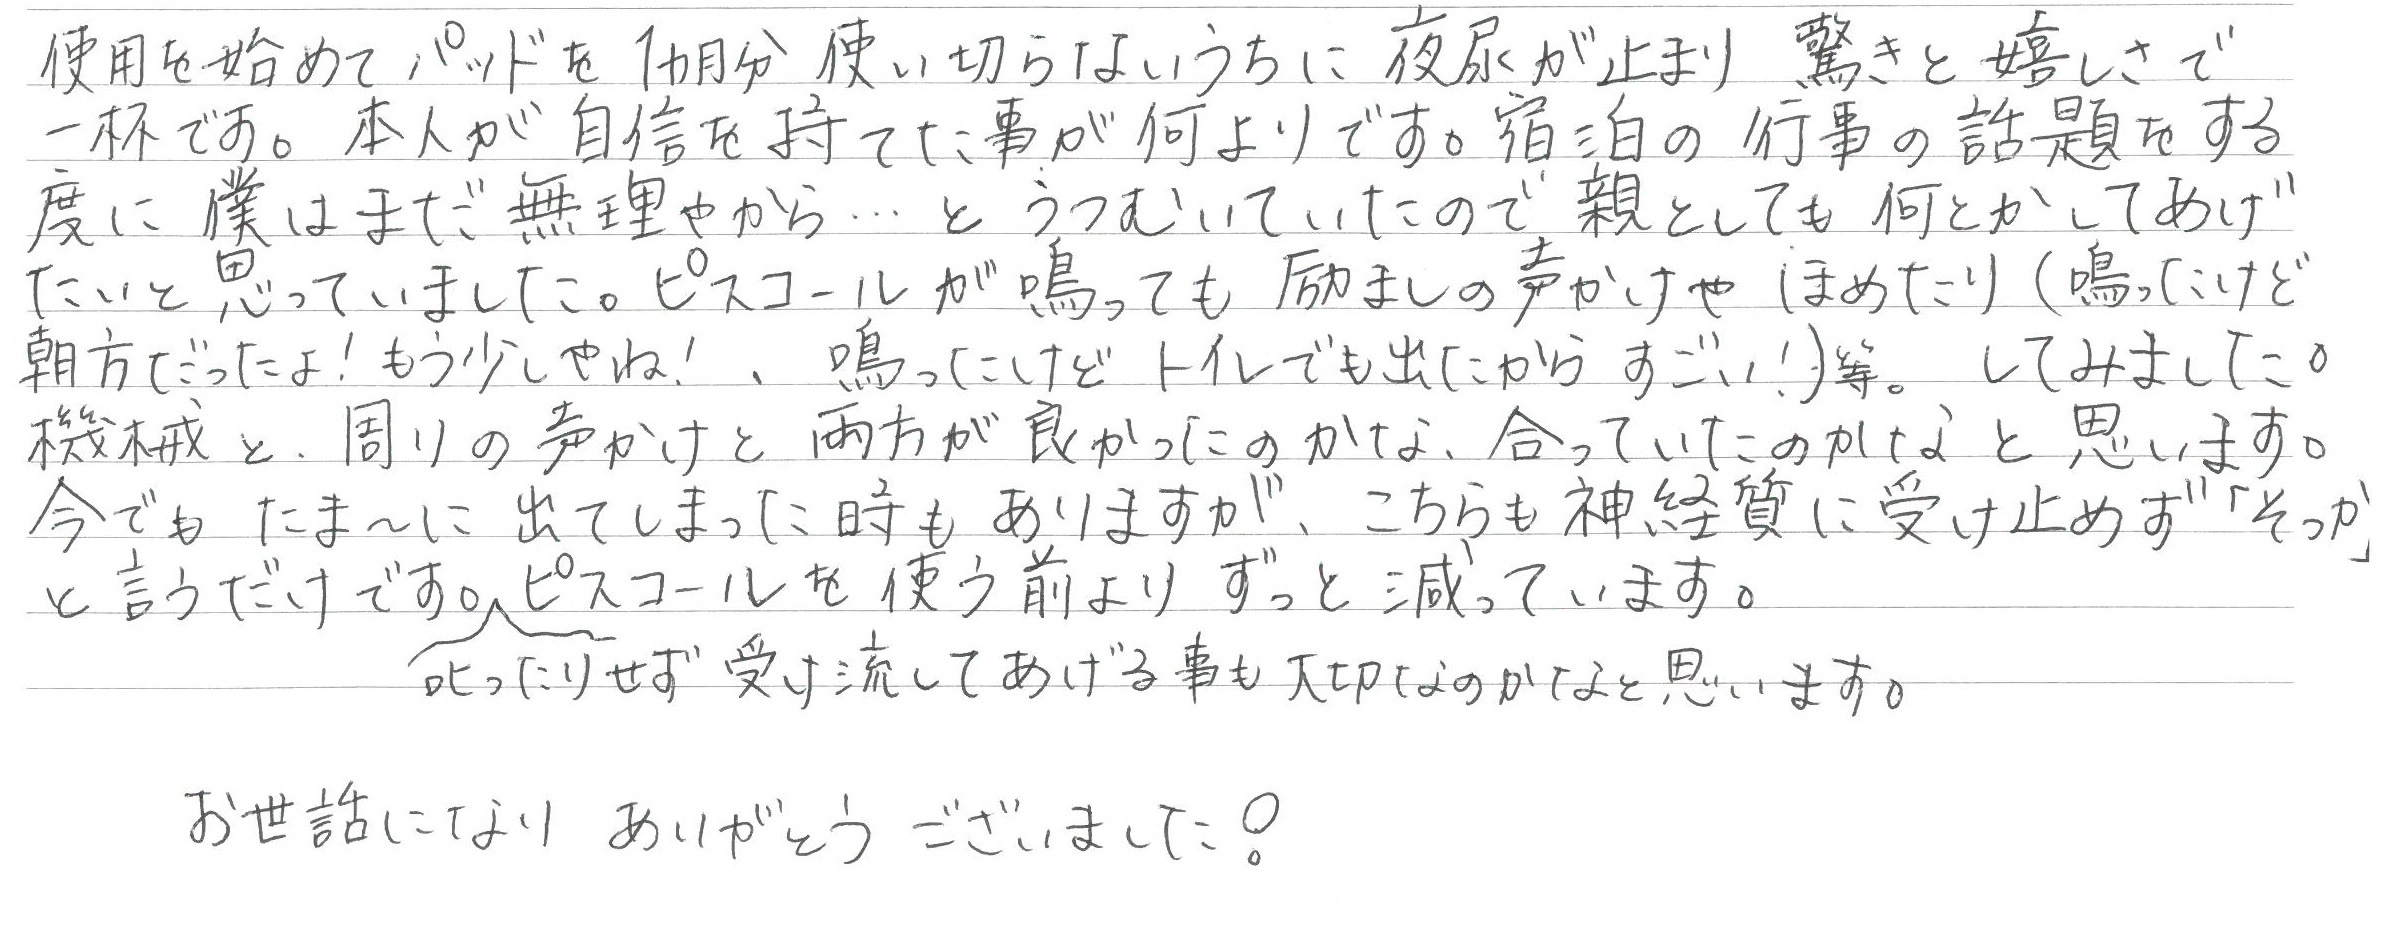 使用を始めてパッドを1カ月分使い切らないうちに夜尿が止まり 驚きと嬉しさで
一杯です。本人が自信を持てた事が何よりです。宿泊の行事の話題をする
度に僕はまだ無理やから…とうつむいていたので親としても何とかしてあげ
たいと思っていました。ピスコールが鳴っても励ましの声かけやほめたり(鳴ったけど
朝方だったよ!もう少しやね!、鳴ったけどトイレでも出たからすごい!)等。してみました。
機械と、周りの声かけと両方が良かったのかな、合っていたのかなと思います。
今でもたま〜に出てしまった時もありますが、こちらも神経質に受け止めず「そっか」
と言うだけです。ピスコールを使う前よりずっと減っています。
叱ったりせず受け流してあげる事も大切なのかなと思います。
お世話になりありがとうございました!